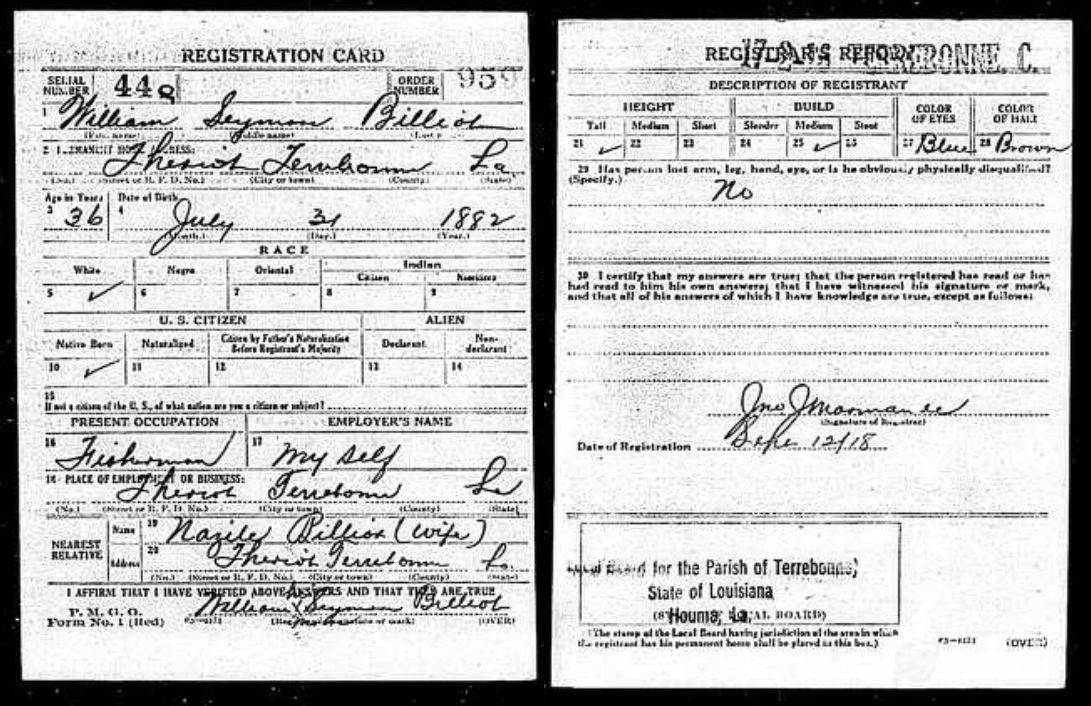 REGISTRATION CARD
SERIAL NUMBER 448 ORDER NUMBER 959
1 William Seymon Billiot
(First name) (Middle name) (Last name)
2 PERMANENT HOME ADDRESS:
Theriot Terrebonne La
(No.) (Street or R. F. D. No.) (City or town) (County) (State)
Age in Years Date of Birth
3 36 4 July 31 1882
(Month.) (Day.) (Year.)
RACE
White Negro Oriental Indian
Citizen Noncitizen
5 ✓ 6 7 8 9
U. S. CITIZEN ALIEN
Native Born Naturalized Citizen by Father's Naturalization Before Registrant's Majority Declarant Non-declarant
10 ✓ 11 12 13 14
15
If not a citizen of the U. S., of what nation are you a citizen or subject?
PRESENT OCCUPATION EMPLOYER'S NAME
16 Fisherman 17 My self
18 PLACE OF EMPLOYMENT OR BUSINESS:
Theriot Terrebonne La
(No.) (Street or R. F. D. No.) (City or town) (County) (State)
NEAREST RELATIVE
Name 19 Billiot (wife)
Address 20 Theriot Terrebonne La.
(No.) (Street or R. F. D. No.) (City or town) (County) (State)
I AFFIRM THAT I HAVE VERIFIED ABOVE ANSWERS AND THAT THEY ARE TRUE
P. M. G. O.
Form No. 1 (Red) William X Seymon Billiot
(Registrant's signature or mark) (OVER)
REGISTRAR'S REPORT
TERREBONNE, C.
DESCRIPTION OF REGISTRANT
HEIGHT BUILD COLOR OF EYES COLOR OF HAIR
Tall Medium Short Slender Medium Stout
21 ✓ 22 23 24 25 ✓ 26 27 Blue 28 Brown
29 Has person lost arm, leg, hand, eye, or is he obviously physically disqualified?
(Specify.) No
30 I certify that my answers are true; that the person registered has read or has
had read to him his own answers; that I have witnessed his signature or mark,
and that all of his answers of which I have knowledge are true, except as follows:
(Signature of Registrar)
Date of Registration Sept 12/18
Local Board for the Parish of Terrebonne,
State of Louisiana
Houma, La.
(STAMP OF LOCAL BOARD)
(The stamp of the Local Board having jurisdiction of the area in which
the registrant has his permanent home shall be placed in this box.)
(OVER)